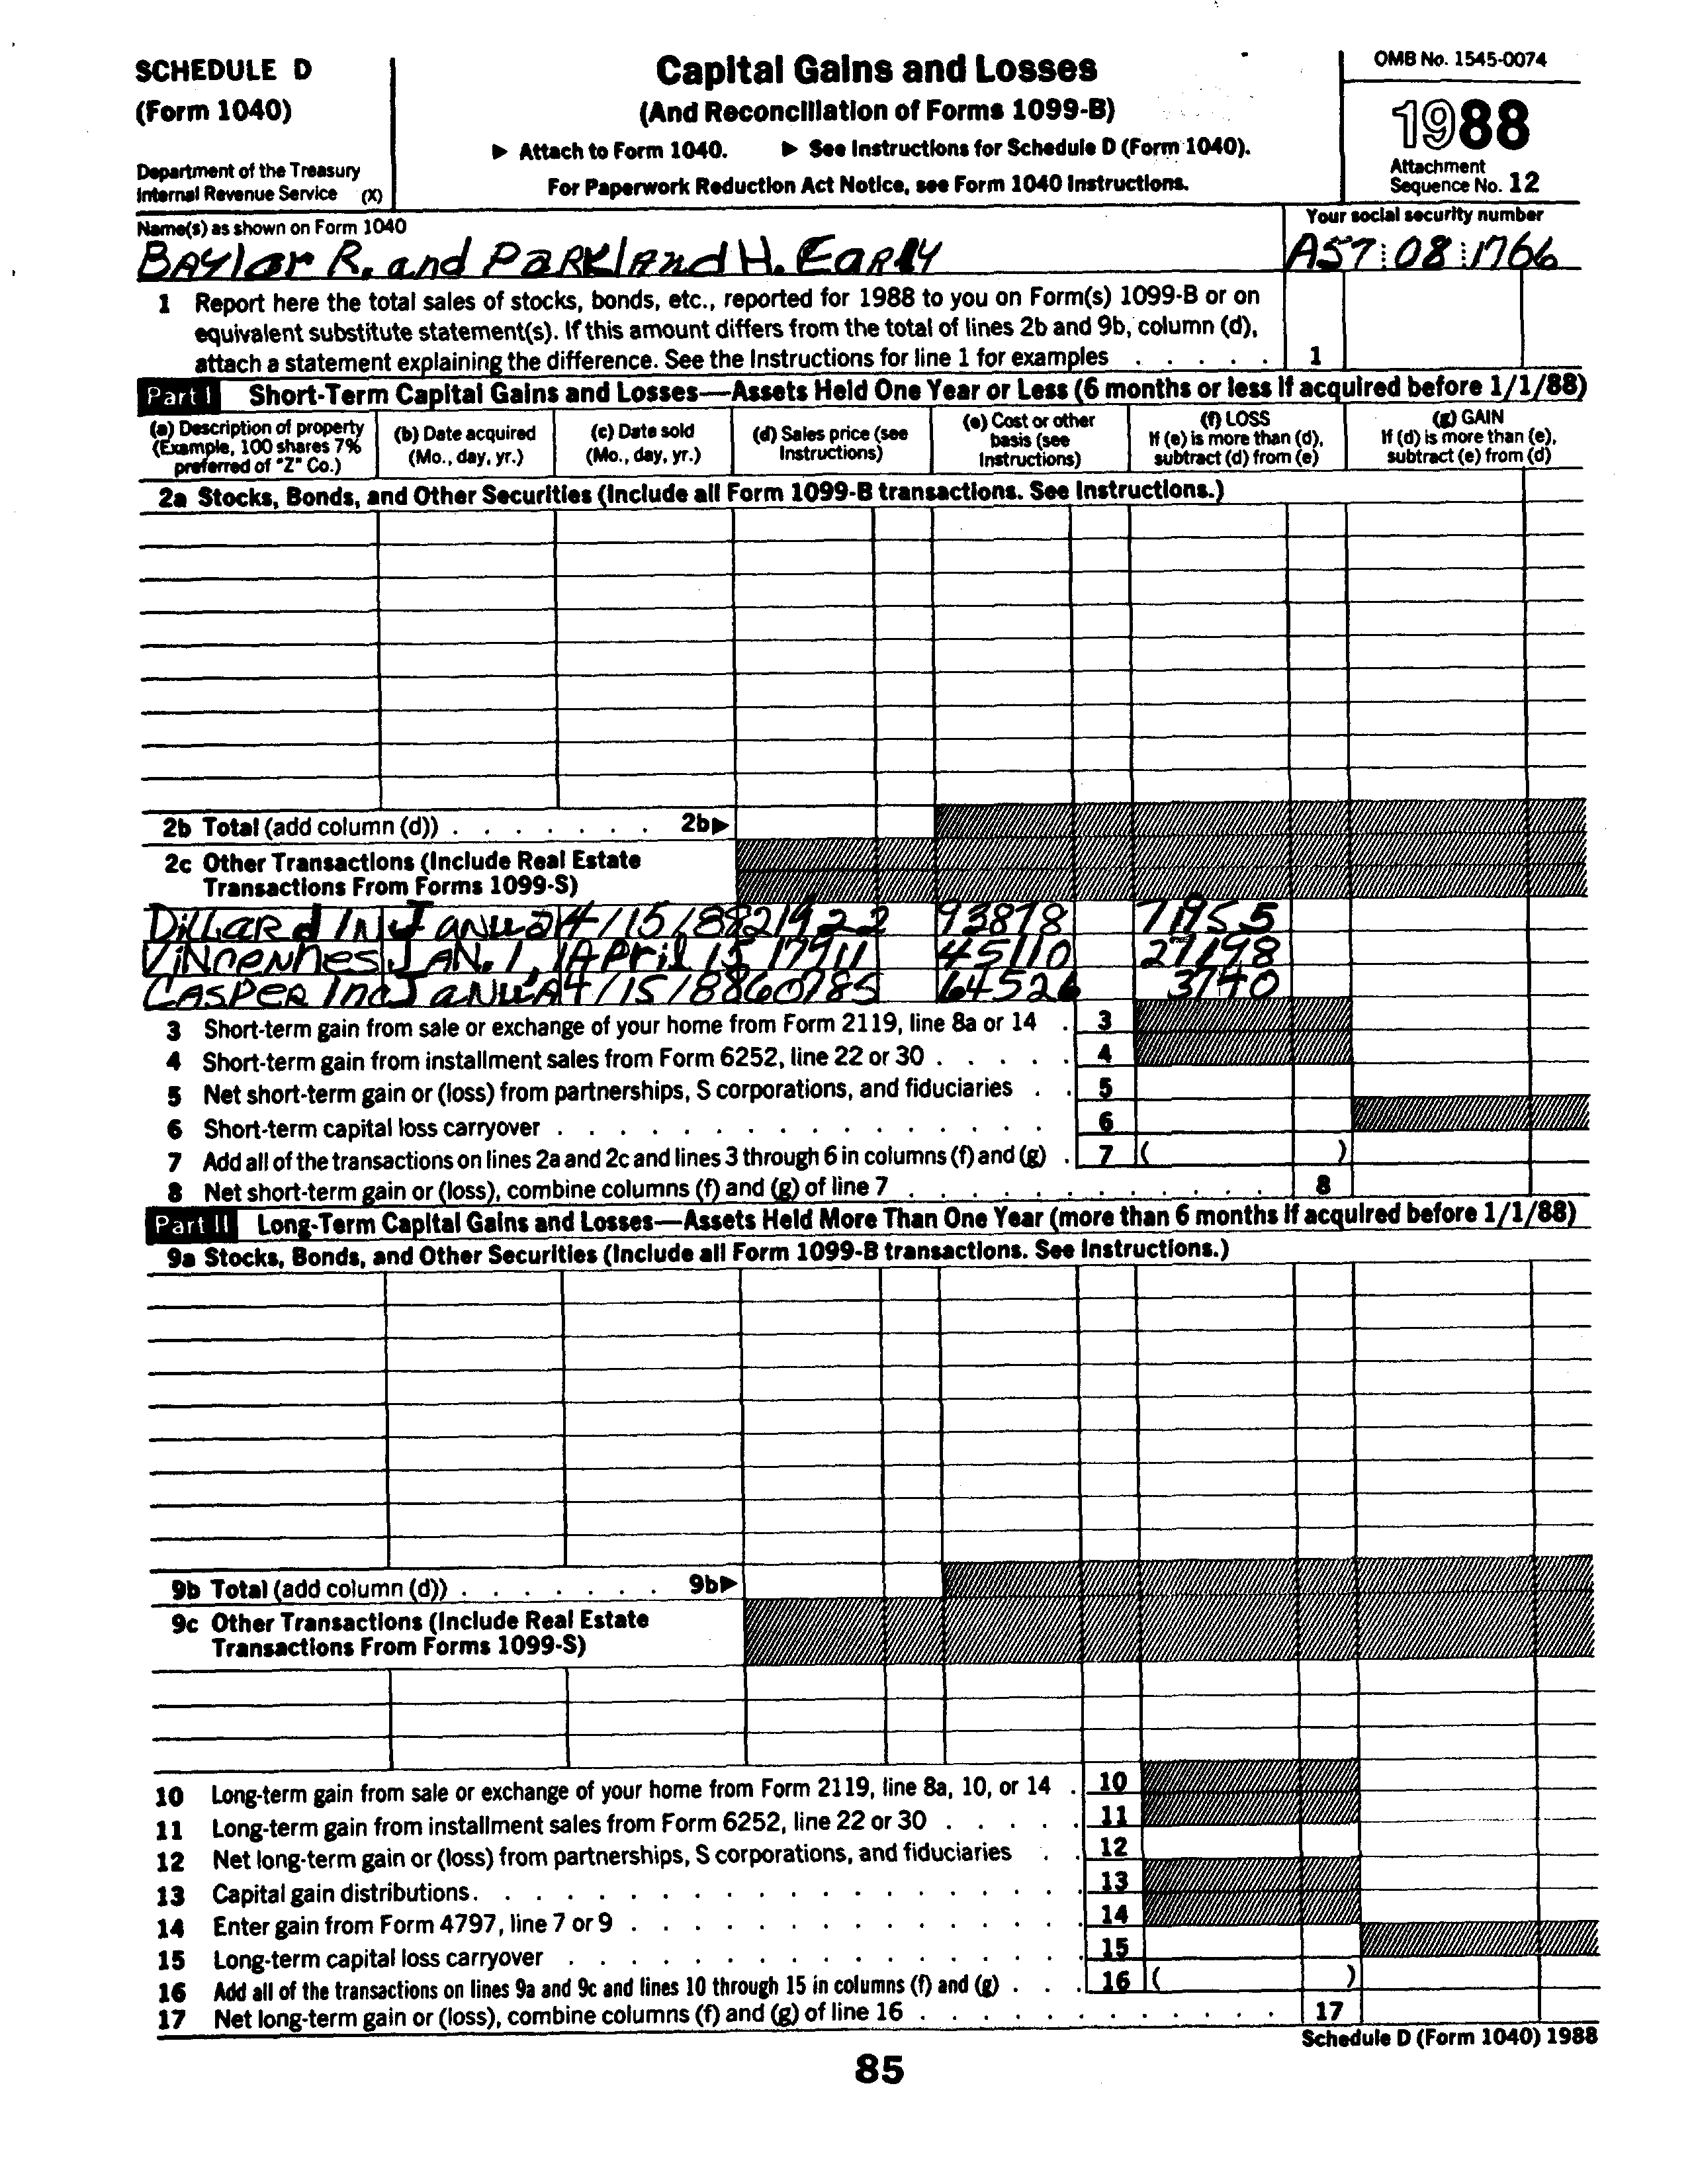 SCHEDULE D
(Form 1040)
Department of the Treasury
Internal Revenue Service (X)
Capital Gains and Losses
(And Reconciliation of Forms 1099-B)
▶ Attach to Form 1040. ▶ See Instructions for Schedule D (Form 1040).
For Paperwork Reduction Act Notice, see Form 1040 Instructions.
OMB No. 1545-0074
1988
Attachment
Sequence No. 12
Name(s) as shown on Form 1040
Baylor R. and Parkland H. Early
Your social security number
A57 08 1766
1 Report here the total sales of stocks, bonds, etc., reported for 1988 to you on Form(s) 1099-B or on
equivalent substitute statement(s). If this amount differs from the total of lines 2b and 9b, column (d),
attach a statement explaining the difference. See the Instructions for line 1 for examples . . . . . 1
Part I Short-Term Capital Gains and Losses—Assets Held One Year or Less (6 months or less if acquired before 1/1/88)
(a) Description of property
(Example, 100 shares 7%
preferred of "Z" Co.)
(b) Date acquired
(Mo., day, yr.)
(c) Date sold
(Mo., day, yr.)
(d) Sales price (see
Instructions)
(e) Cost or other
basis (see
Instructions)
(f) LOSS
If (e) is more than (d),
subtract (d) from (e)
(g) GAIN
If (d) is more than (e),
subtract (e) from (d)
2a Stocks, Bonds, and Other Securities (Include all Form 1099-B transactions. See Instructions.)
2b Total (add column (d)) . . . . . . . 2b▶
2c Other Transactions (Include Real Estate
Transactions From Forms 1099-S)
Dillard In Janua 4/15/88 21922 93878 71955
Vincennes Jan. 1, April 15 17911 45110 27198
Casper Inc Janua 4/15/88 60785 64526 3740
3 Short-term gain from sale or exchange of your home from Form 2119, line 8a or 14 . 3
4 Short-term gain from installment sales from Form 6252, line 22 or 30 . . . . . 4
5 Net short-term gain or (loss) from partnerships, S corporations, and fiduciaries . . 5
6 Short-term capital loss carryover . . . . . . . . . . . . . . . . 6
7 Add all of the transactions on lines 2a and 2c and lines 3 through 6 in columns (f) and (g) . 7 ( )
8 Net short-term gain or (loss), combine columns (f) and (g) of line 7 . . . . . . . . . . . . 8
Part II Long-Term Capital Gains and Losses—Assets Held More Than One Year (more than 6 months if acquired before 1/1/88)
9a Stocks, Bonds, and Other Securities (Include all Form 1099-B transactions. See Instructions.)
9b Total (add column (d)) . . . . . . . 9b▶
9c Other Transactions (Include Real Estate
Transactions From Forms 1099-S)
10 Long-term gain from sale or exchange of your home from Form 2119, line 8a, 10, or 14 . 10
11 Long-term gain from installment sales from Form 6252, line 22 or 30 . . . . . 11
12 Net long-term gain or (loss) from partnerships, S corporations, and fiduciaries . . 12
13 Capital gain distributions . . . . . . . . . . . . . . . . . . 13
14 Enter gain from Form 4797, line 7 or 9 . . . . . . . . . . . . . 14
15 Long-term capital loss carryover . . . . . . . . . . . . . . . 15
16 Add all of the transactions on lines 9a and 9c and lines 10 through 15 in columns (f) and (g) . . . 16 ( )
17 Net long-term gain or (loss), combine columns (f) and (g) of line 16 . . . . . . . . . . . . 17
Schedule D (Form 1040) 1988
85